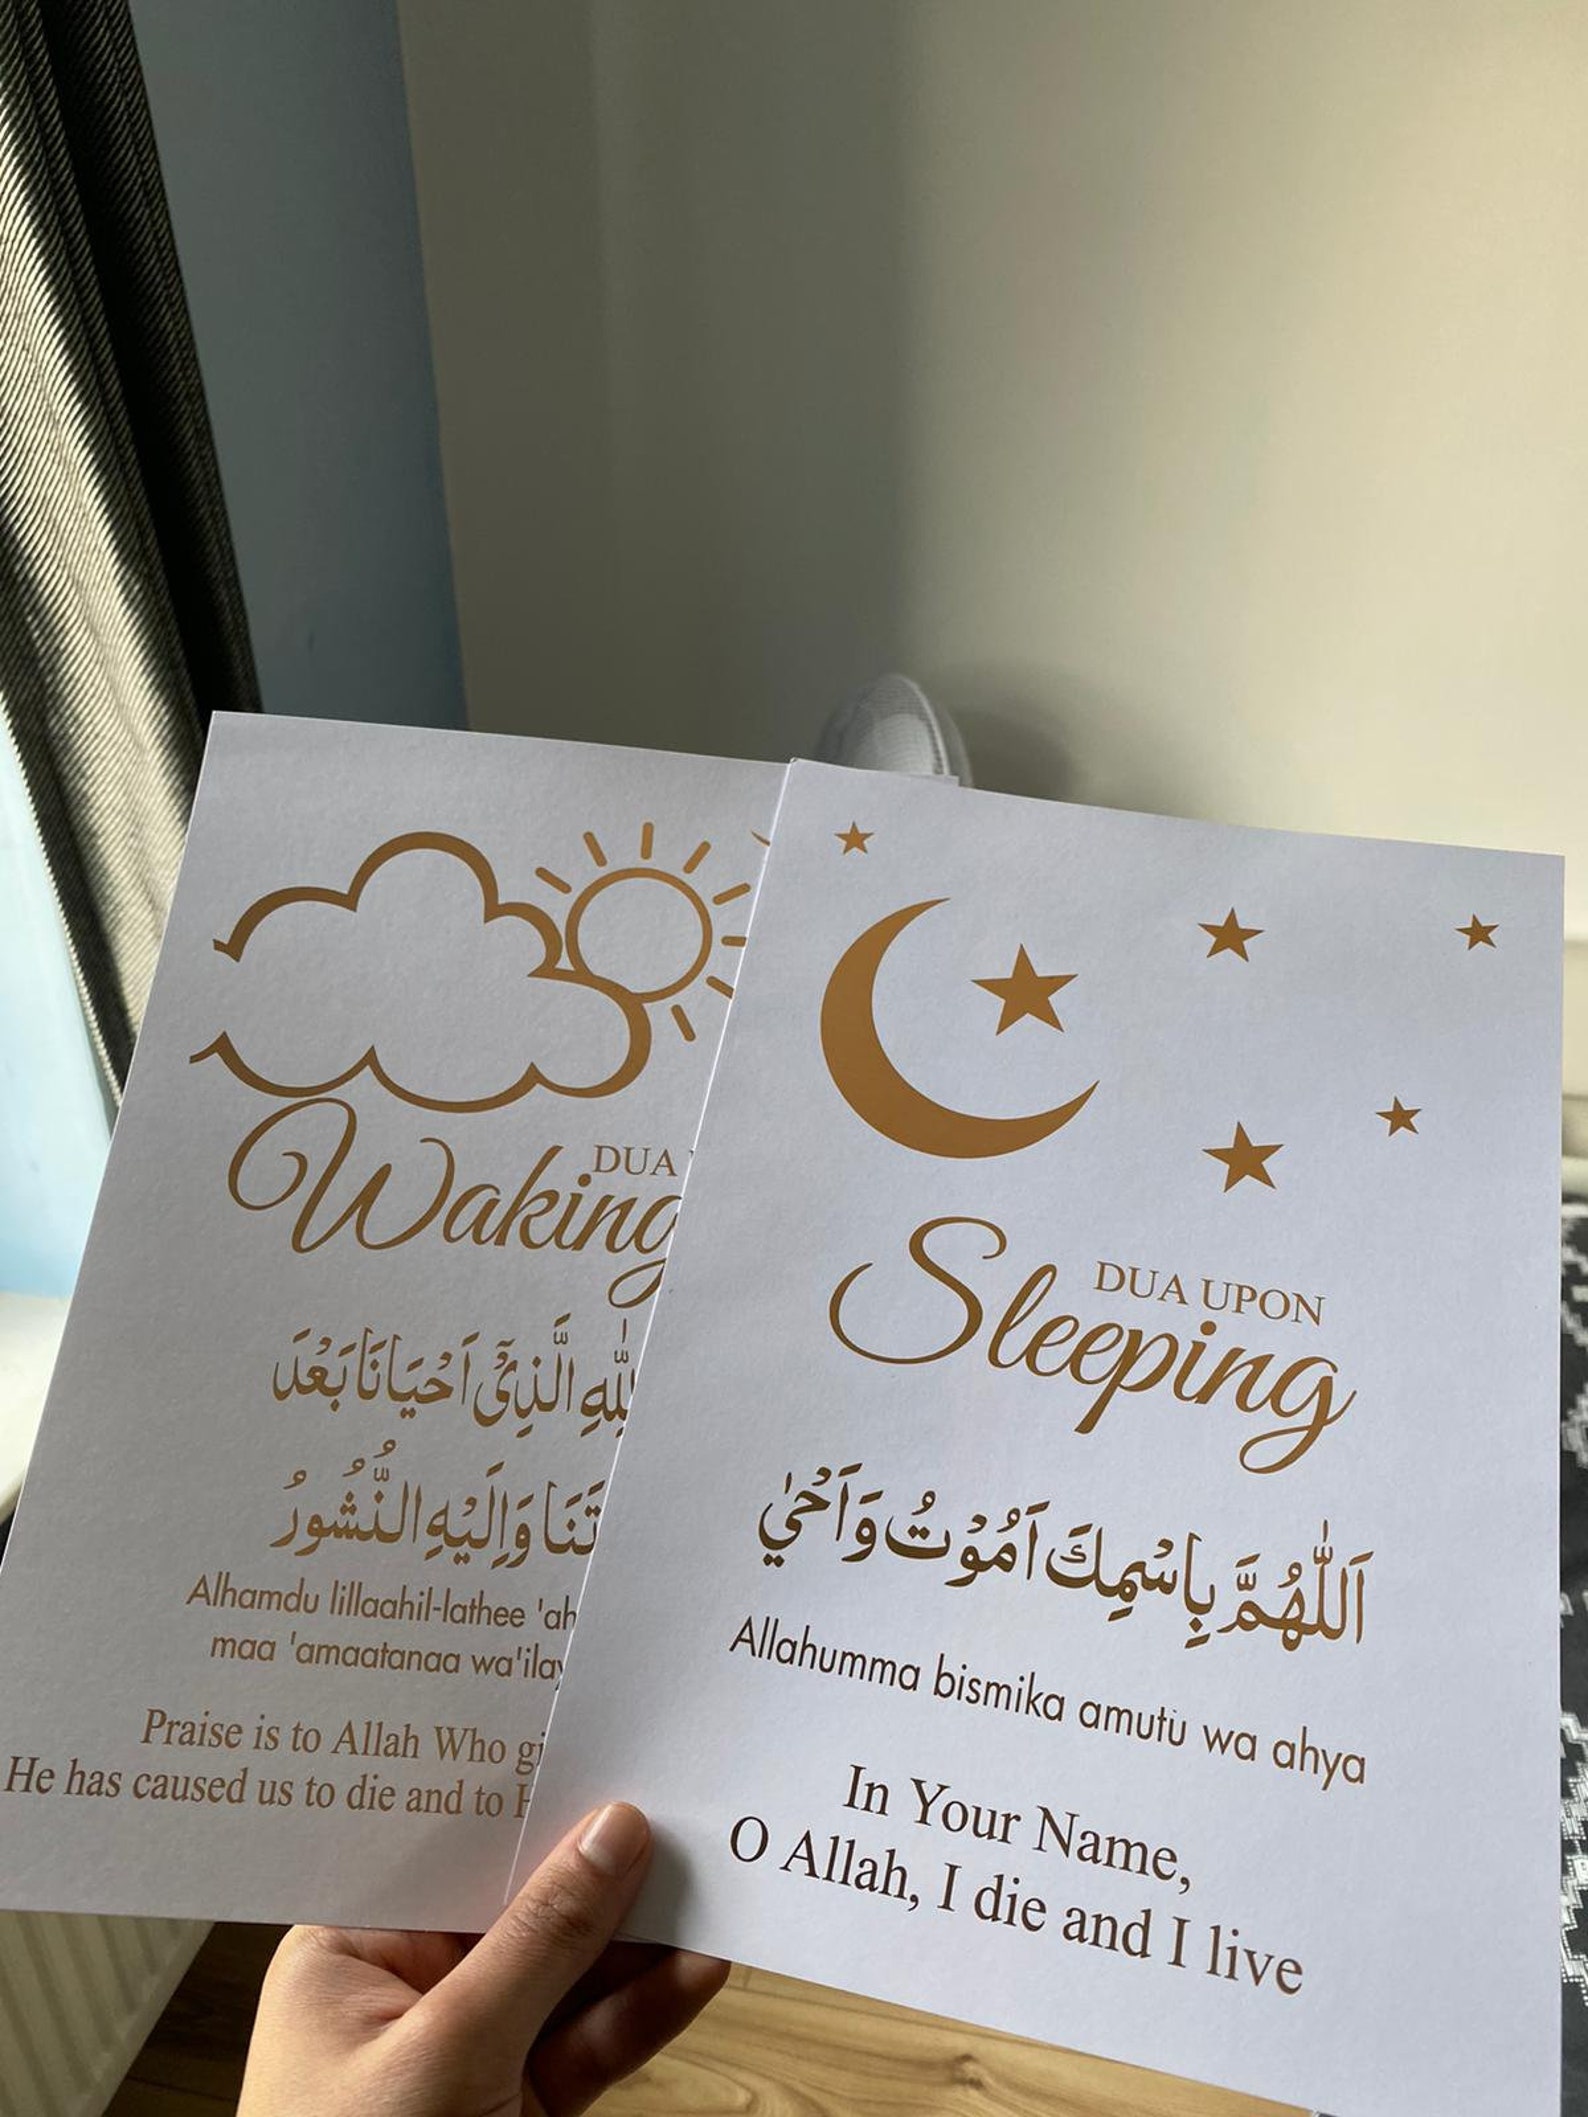 DUA
Waking
لِلّٰهِ الَّذِيْٓ اَحْيَانَا بَعْدَ
تَنَا وَاِلَيْهِ النُّشُورُ
Alhamdu lillaahil-lathee 'ah
maa 'amaatanaa wa'ilay
Praise is to Allah Who gi
He has caused us to die and to H
DUA UPON
Sleeping
اَللّٰهُمَّ بِاسْمِكَ اَمُوْتُ وَاَحْيٰي
Allahumma bismika amutu wa ahya
In Your Name,
O Allah, I die and I live